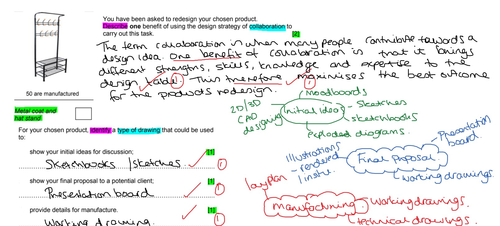 You have been asked to redesign your chosen product.
Describe one benefit of using the design strategy of collaboration to
carry out this task.
[2]
The term collaboration is when many people contribute towards a
design idea. One benefit of collaboration is that it brings
different strengths, skills, knowledge and expertise to the
design table. This therefore maximises the best outcome
for the products redesign.
50 are manufactured
Metal coat and
hat stand
For your chosen product, identify a type of drawing that could be used
to:
show your initial ideas for discussion;
[1]
Sketchbooks / sketches
1
show your final proposal to a potential client;
[1]
Presentation board
1
provide details for manufacture.
[1]
Working drawing
1
Moodboards
2D/3D
CAD
designs
Initial Idea
Sketches
sketchbooks
exploded diagrams.
Illustrations
- rendered
Final Proposal
Presentation
board
working drawings
Manufacturing
Working drawings.
technical drawings.